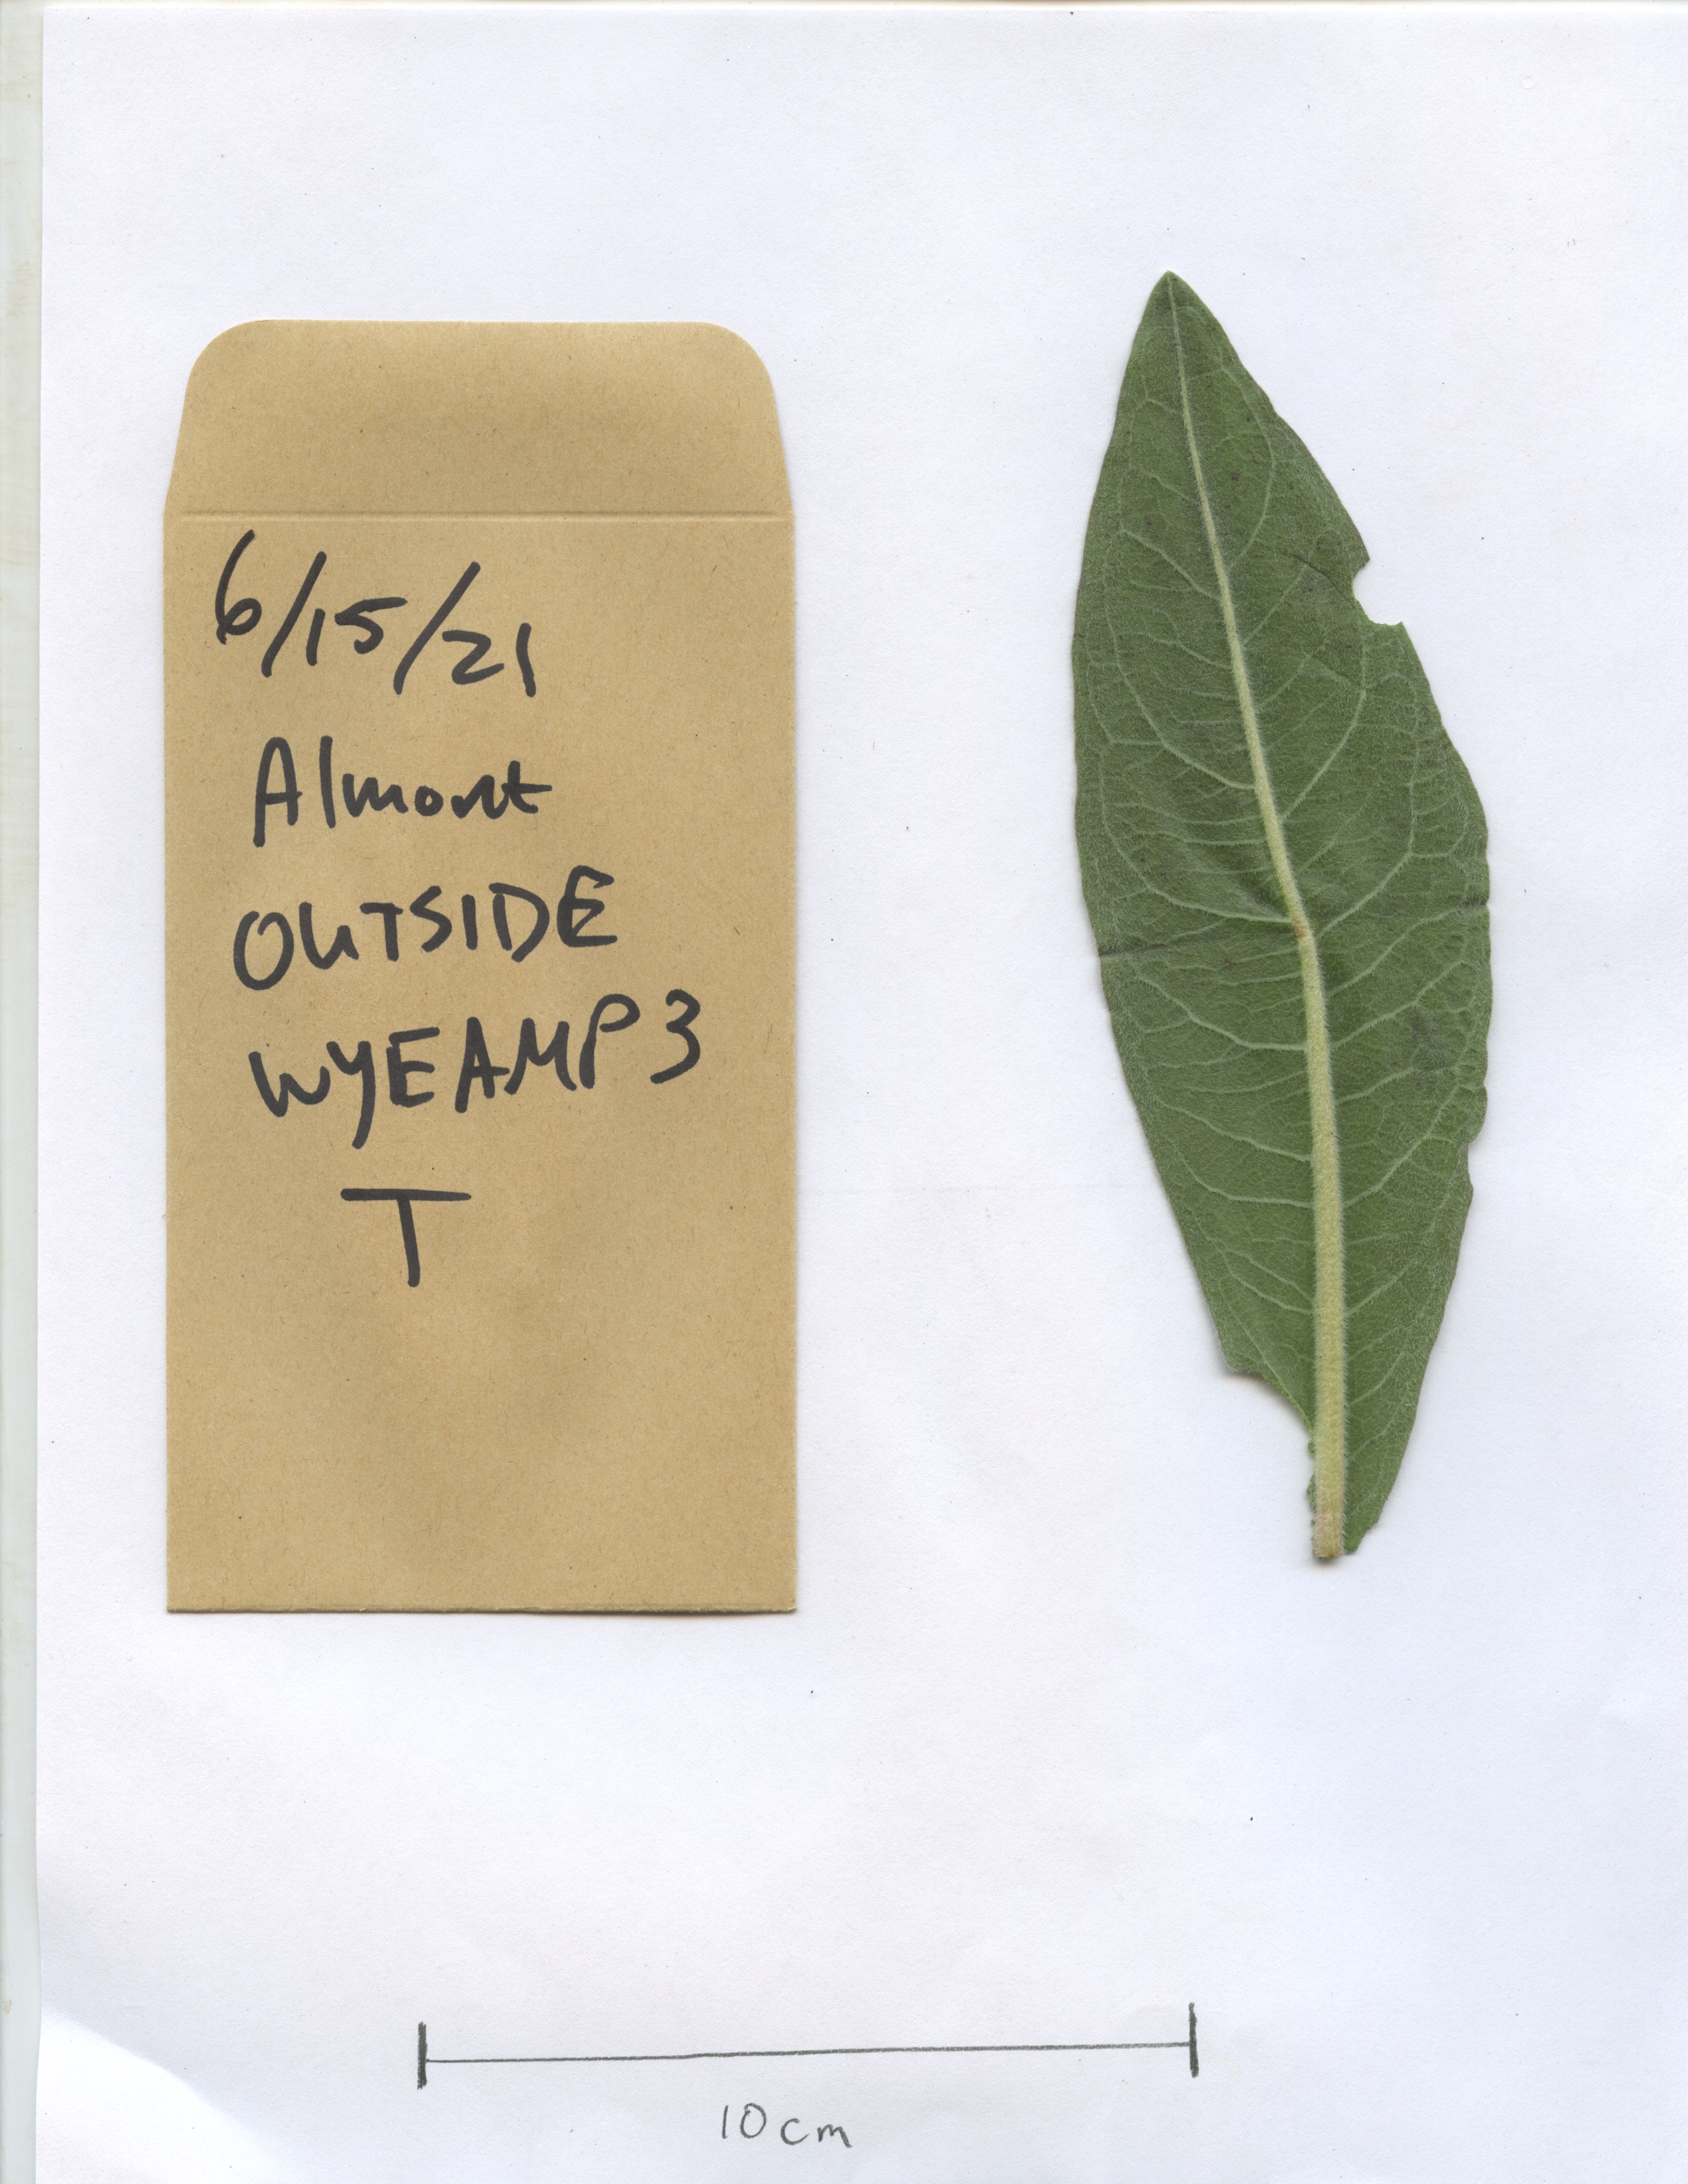 6/15/21
Almont
OUTSIDE
WYEAMP3
T
10cm